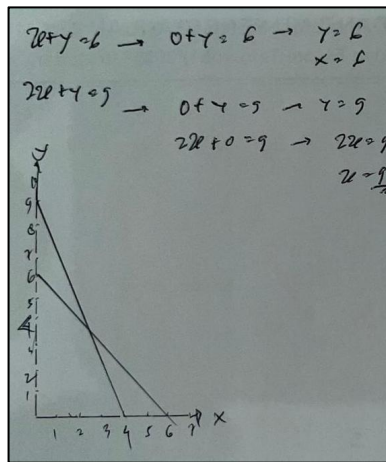 x+y=6 → 0+y=6 → y=6
x=6
2x+y=9 → 0+y=9 → y=9
2x+0=9 → 2x=9
x=9
y
9
8
7
6
5
4
2
1
1 2 3 4 5 6 7 x